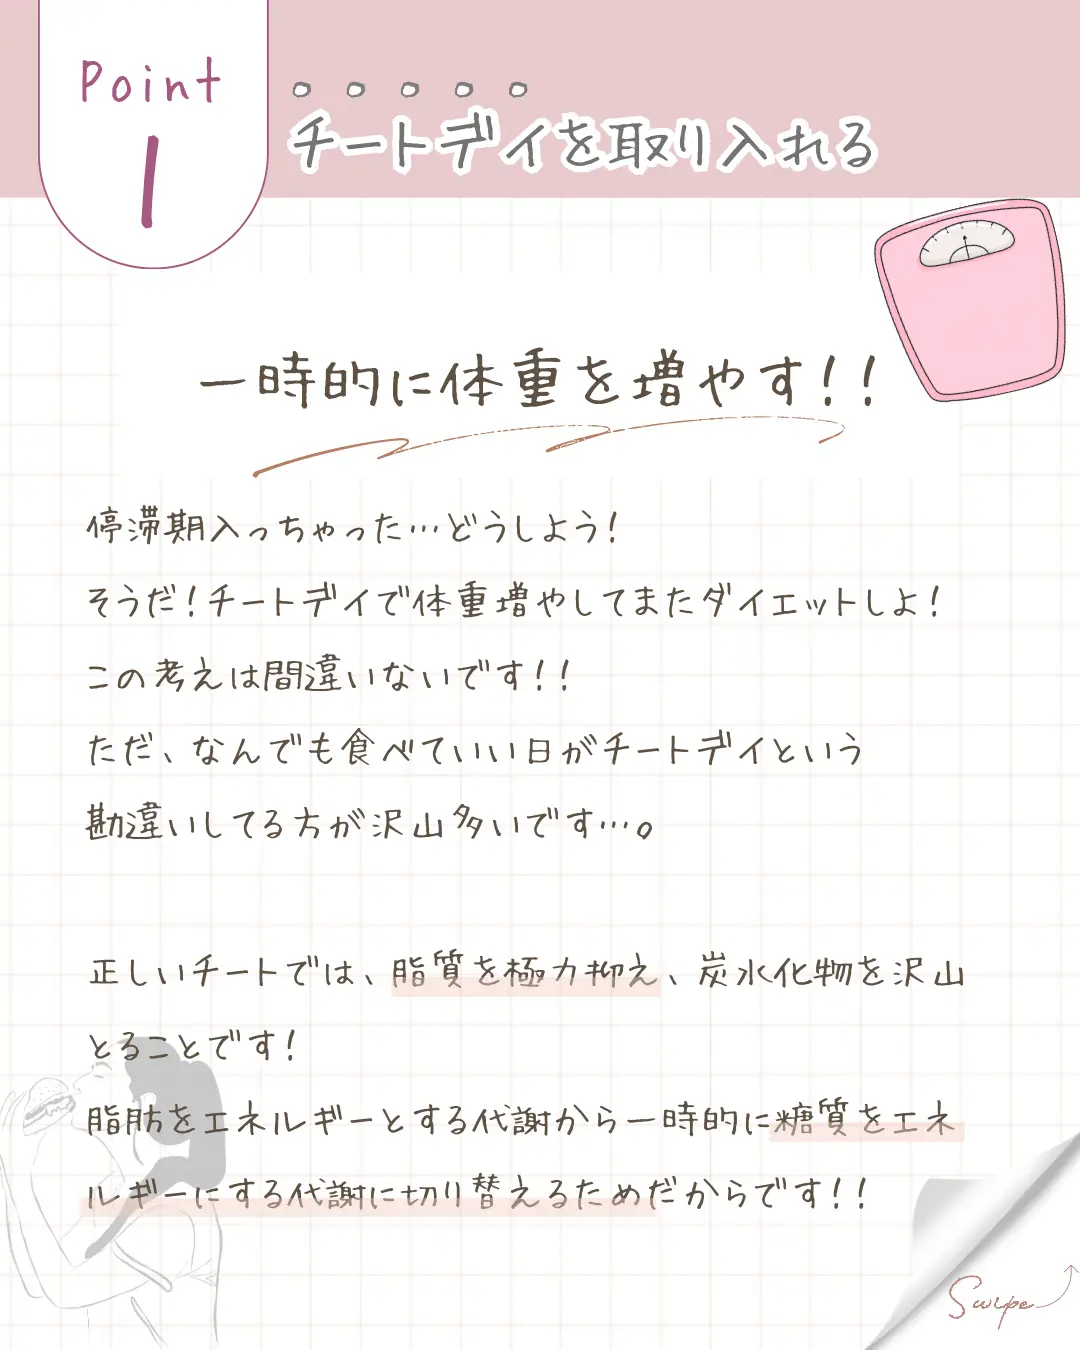 Point
1
チートデイを取り入れる
一時的に体重を増やす!!
停滞期入っちゃった…どうしよう!
そうだ!チートデイで体重増やしてまたダイエットしよ!
この考えは間違いないです!!
ただ、なんでも食べていい日がチートデイという
勘違いしてる方が沢山多いです…。
正しいチートでは、脂質を極力抑え、炭水化物を沢山
とることです!
脂肪をエネルギーとする代謝から一時的に糖質をエネ
ルギーにする代謝に切り替えるためだからです!!
Swipe